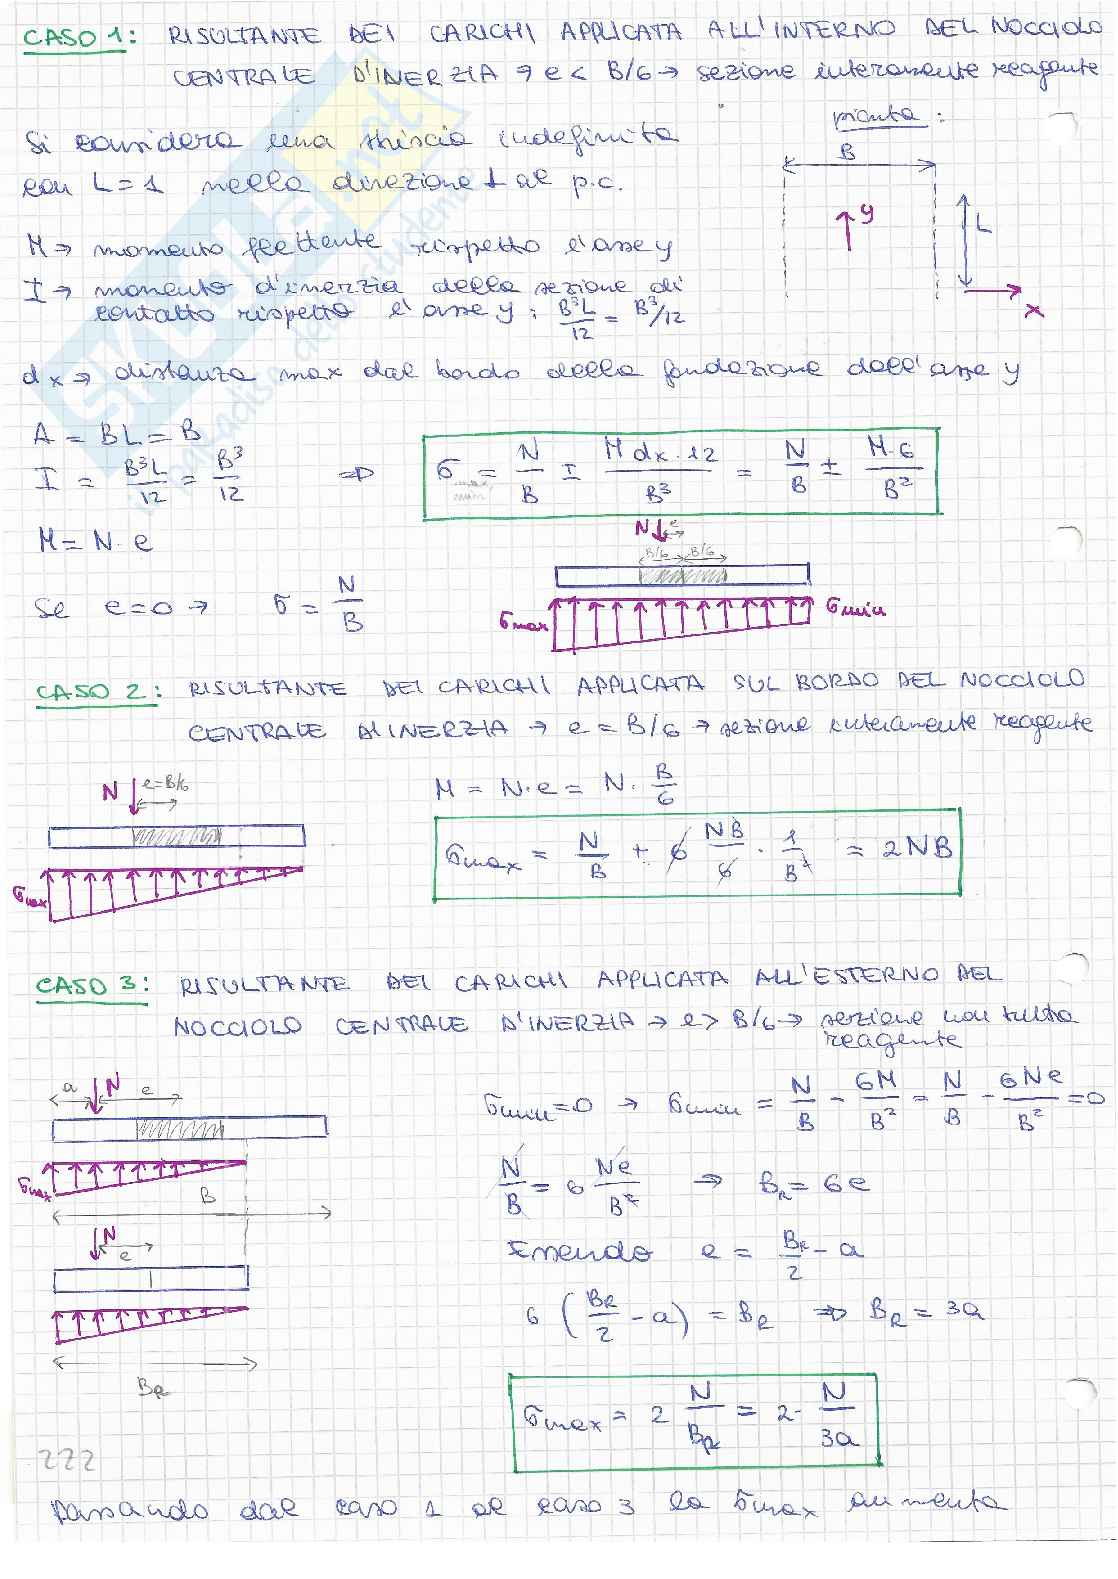 CASO 1: RISULTANTE DEI CARICHI APPLICATA ALL'INTERNO DEL NOCCIOLO
CENTRALE D'INERZIA → e < B/6 → sezione interamente reagente
Si considera una striscia indefinita
con L = 1 nella direzione ⊥ al p.c.
pianta:
B
y
L
x
M → momento flettente rispetto l'asse y
I → momento d'inerzia della sezione di
contatto rispetto l'asse y: B³L/12 = B³/12
dx → distanza max dal bordo della fondazione dall'asse y
A = BL = B
I = B³L/12 = B³/12 ⇒ σ max/min = N/B ± M dx · 12/B³ = N/B ± M·6/B²
M = N · e
N e
B/6 B/6
Se e = 0 → σ = N/B
σmax σmin
CASO 2: RISULTANTE DEI CARICHI APPLICATA SUL BORDO DEL NOCCIOLO
CENTRALE D'INERZIA → e = B/6 → sezione interamente reagente
N e = B/6
M = N·e = N · B/6
σmax = N/B + 6 NB/6 · 1/B² = 2NB
σmax
CASO 3: RISULTANTE DEI CARICHI APPLICATA ALL'ESTERNO DEL
NOCCIOLO CENTRALE D'INERZIA → e > B/6 → sezione non tutta
reagente
a N e
σmin = 0 → σmin = N/B - 6M/B² = N/B - 6Ne/B² = 0
σmax
B
N/B = 6 Ne/B² → BR = 6e
N
e
Essendo e = BR/2 - a
6 (BR/2 - a) = BR ⇒ BR = 3a
BR
σmax = 2 N/BR = 2· N/3a
222
Passando dal caso 1 al caso 3 la σmax aumenta